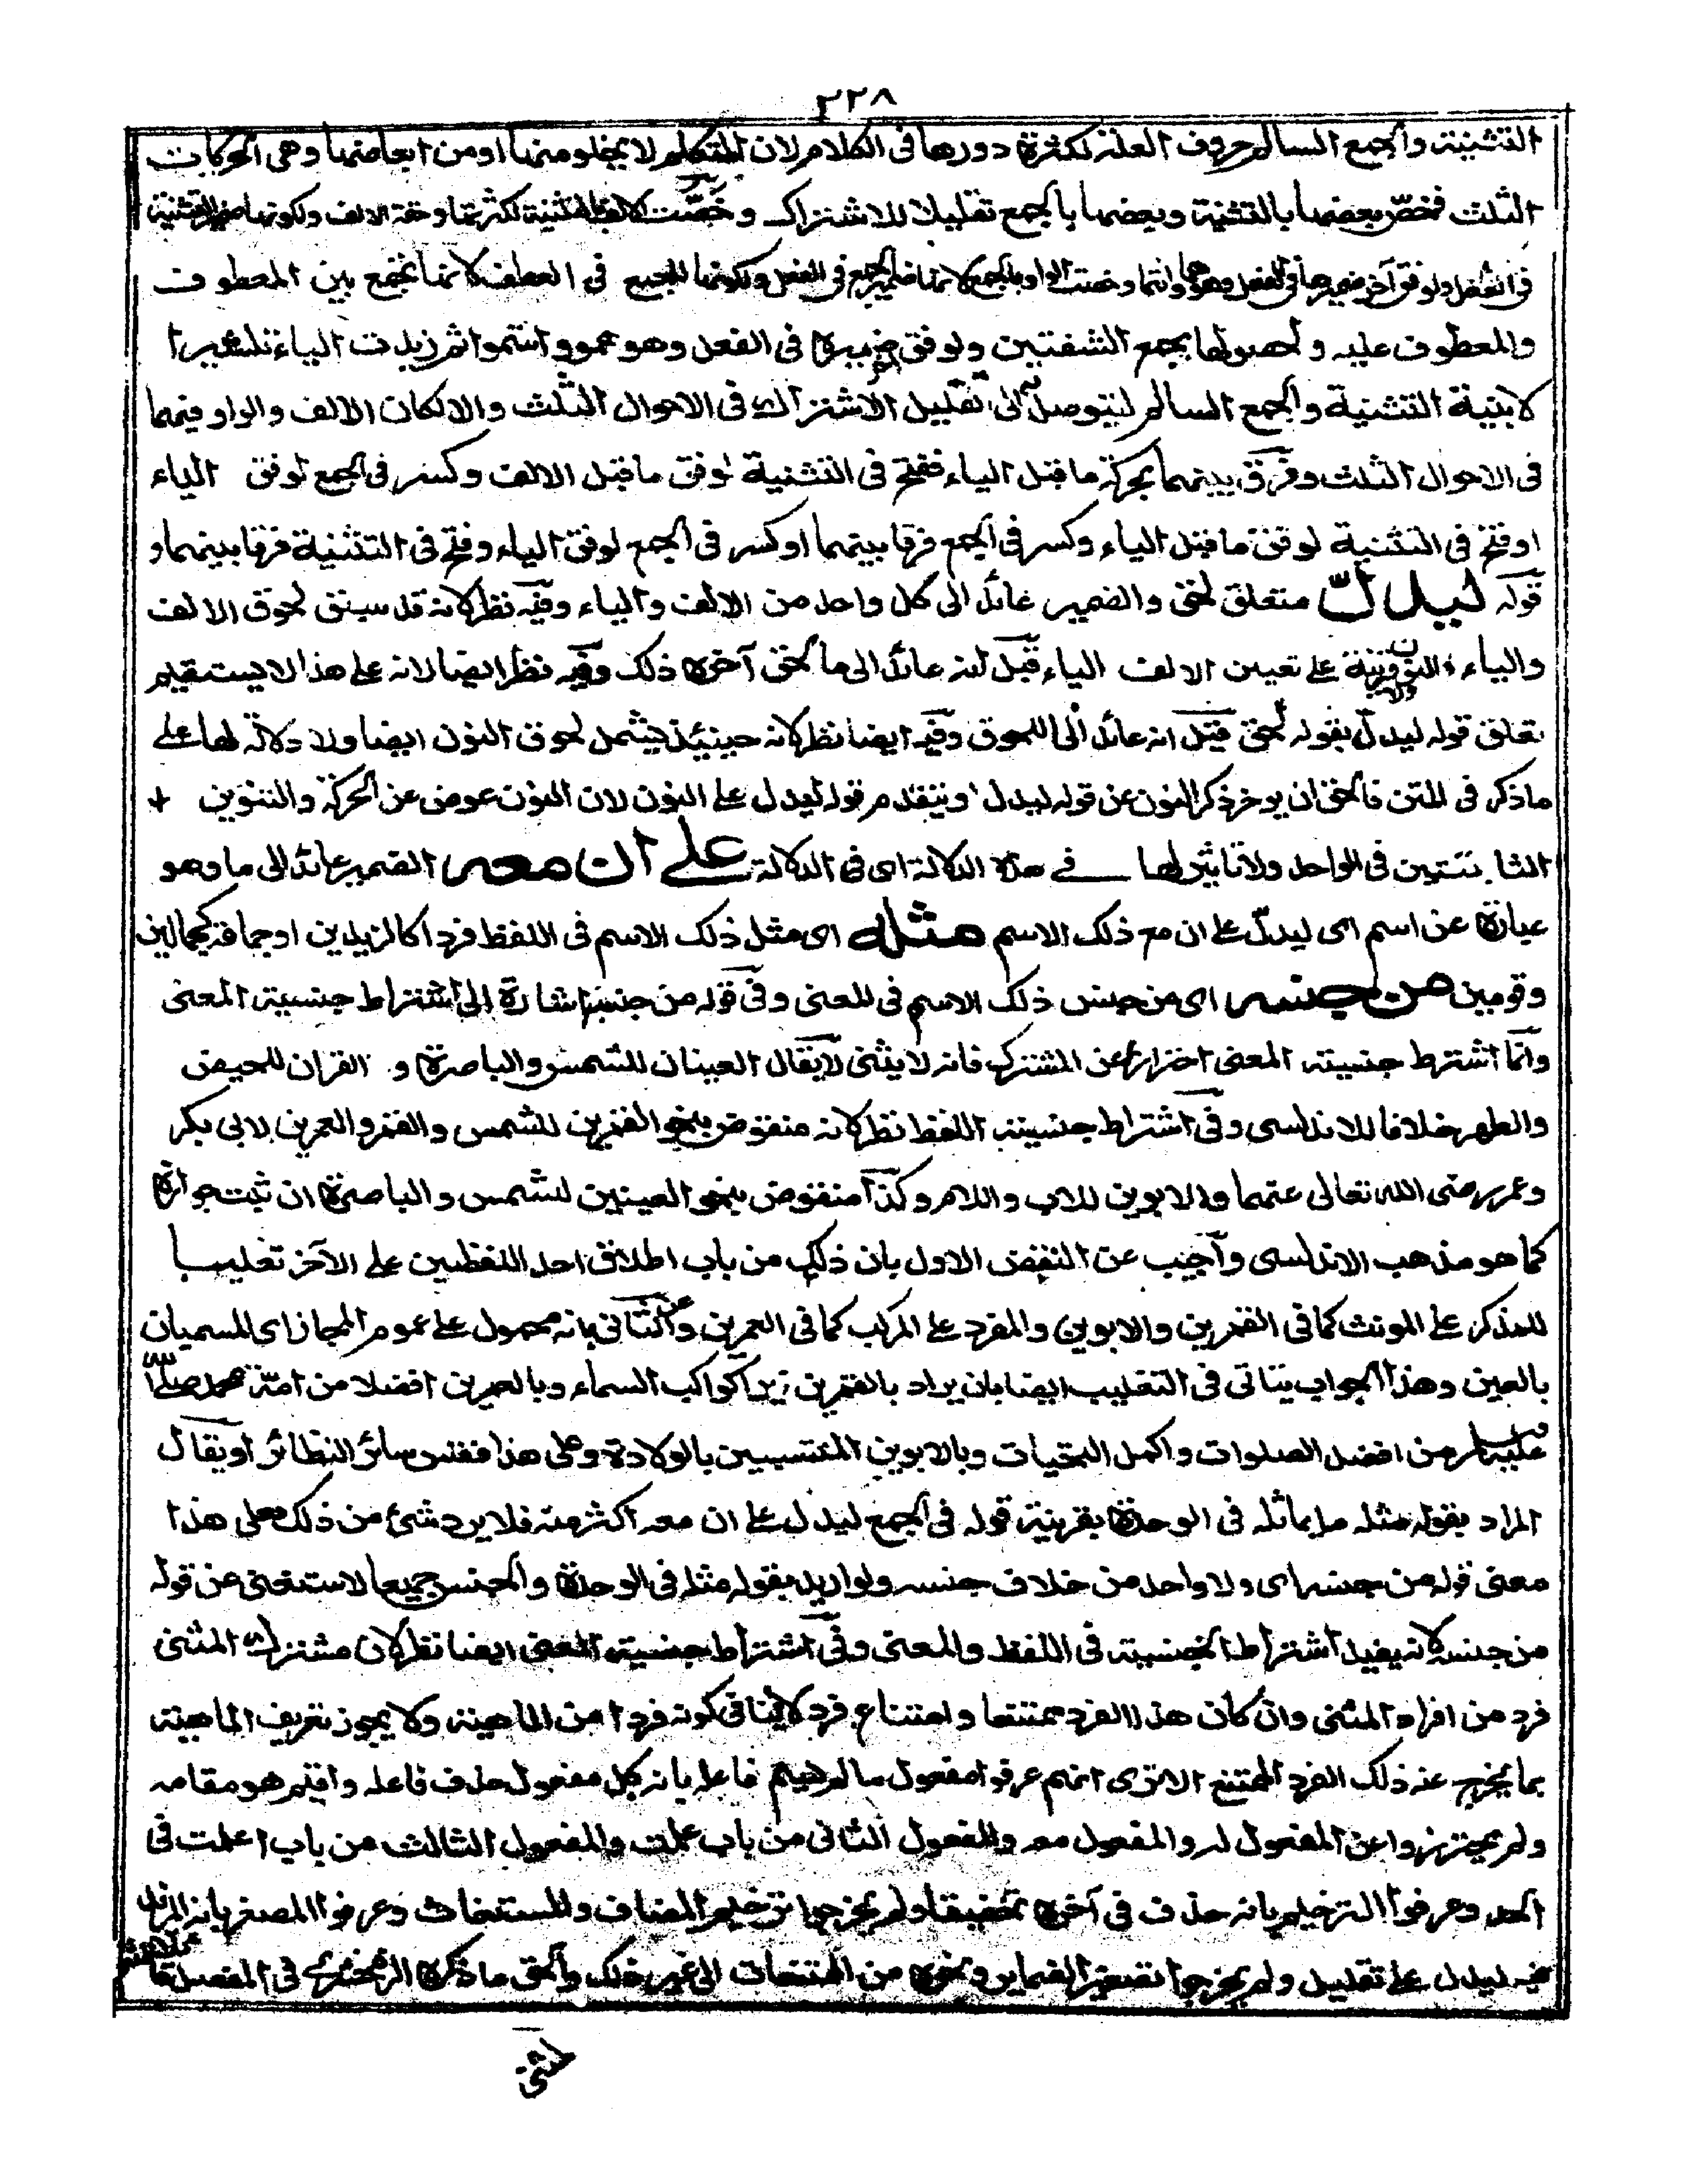 ٢٢٨
التثنية والجمع السالم حروف العلة لكثرة دورها فى الكلام لان المتكلم لا يخلو منها او من ابعاضها وهى الحركات
الثلث فخص بعضها بالتثنية وبعضها بالجمع تقليلا للاشتراك وخصت الالف بالتثنية لكثرتها وخفة الالف ولكونها ضمير التثنية
فى الفعل ولوفق آخر ضميرها فى الفعل وهو هما وانتما وخصت الواو بالجمع لانها ضمير الجمع فى الفعل ولكونها للجمع فى العطف لانها تجمع بين المعطوف
والمعطوف عليه ولحصولها بجمع الشفتين ولوفق ضميره فى الفعل وهو همو وانتمو ثم زيدت الياء تكثيرا
لابنية التثنية والجمع السالم ليتوصل الى تقليل الاشتراك فى الاحوال الثلث والا لكان الالف والواو فيهما
فى الاحوال الثلث وفرق بينهما بحركة ما قبل الياء ففتح فى التثنية لوفق ما قبل الالف وكسر فى الجمع لوفق الياء
او فتح فى التثنية لوفق ما قبل الياء وكسر فى الجمع فرقا بينهما او كسر فى الجمع لوفق الياء وفتح فى التثنية فرقا بينهما و
قوله ليدل متعلق لحق والضمير عائد الى كل واحد من الالف والياء وفيه نظر لانه قد سبق لحوق الالف
والياء والنون قرينة على تعيين الالف الياء قيل انه عائد الى ما لحق آخره ذلك وفيه نظر ايضا لانه على هذا لا يستقيم
تعلق قوله ليدل بقوله لحق قيل انه عائد الى اللحوق وفيه ايضا نظر لانه حينئذ يشمل لحوق النون ايضا ولا دلالة لها على
ما ذكر فى المتن فالحق ان يوخر ذكر النون عن قوله ليدل او يتقدم قوله ليدل على النون لان النون عوض عن الحركة والتنوين
الثابتتين فى الواحد ولا تاثير لها فى هذه الدلالة اى فى الدلالة على ان معه الضمير عائد الى ما وهو
عبارة عن اسم اى ليدل على ان مع ذلك الاسم مثله اى مثل ذلك الاسم فى اللفظ فردا كالزيدين او جماعة كجمالين
وقومين من جنسه اى من جنس ذلك الاسم فى المعنى وفى قوله من جنسه اشارة الى اشتراط جنسية المعنى
وانما اشترط جنسية المعنى احترازا عن المشترك فانه لا يثنى لا يقال العينان للشمس والباصرة و القران للحيض
والطهر خلافا للاندلسى وفى اشتراط جنسية اللفظ نظر لانه منقوض بنحو القمرين للشمس والقمر والعمرين لابى بكر
وعمر رضى الله تعالى عنهما والابوين للاب والام وكذا منقوض بنحو العينين للشمس والباصرة ان ثبت جوازه
كما هو مذهب الاندلسى واجيب عن النقض الاول بان ذلك من باب اطلاق احد اللفظين على الآخر تغليبا
للمذكر على المونث كما فى القمرين والابوين والمفرد على المركب كما فى العمرين وعن الثانى بانه محمول على عموم المجاز اى المسميان
بالعين وهذا الجواب يتاتى فى التغليب ايضا بان يراد بالقمرين نيرا كواكب السماء وبالعمرين افضلا من امة محمد صلى
عليه وسلم من افضل الصلوات واكمل التحيات وبالابوين المنتسبين بالولادة وعلى هذا فقس سائر النظائر او يقال
المراد بقوله مثله ما يماثله فى الوحدة بقرينة قوله فى الجمع ليدل على ان معه اكثر منه فلا يرد شئ من ذلك وعلى هذا
معنى قوله من جنسه اى ولا واحد من خلاف جنسه ولو اريد بقوله مثله فى الوحدة والجنس جميعا لاستغنى عن قوله
من جنسه لانه يفيد اشتراط الجنسية فى اللفظ والمعنى وفى اشتراط جنسية المعنى ايضا نظر لان مشترك المثنى
فرد من افراد المثنى وان كان هذا الفرد ممتنعا وامتناع فرد لا ينافى كونه فردا من الماهية ولا يجوز تعريف الماهية
بما يخرج عنه ذلك الفرد الممتنع الا ترى انهم عرفوا مفعول ما لم يسم فاعله بانه كل مفعول حذف فاعله واقيم هو مقامه
ولم يحترزوا عن المفعول له والمفعول معه والمفعول الثانى من باب علمت والمفعول الثالث من باب اعلمت فى
الحد وعرفوا الترخيم بانه حذف فى آخره تخفيفا ولم يخرجوا ترخيم المضاف والمستغاث وعرفوا المصغر بانه المزيد
فيه ليدل على تقليل ولم يخرجوا تصغير الضماير ونحوها من الممتنعات الى غير ذلك والحق ما ذكره الزمخشرى فى المفصل